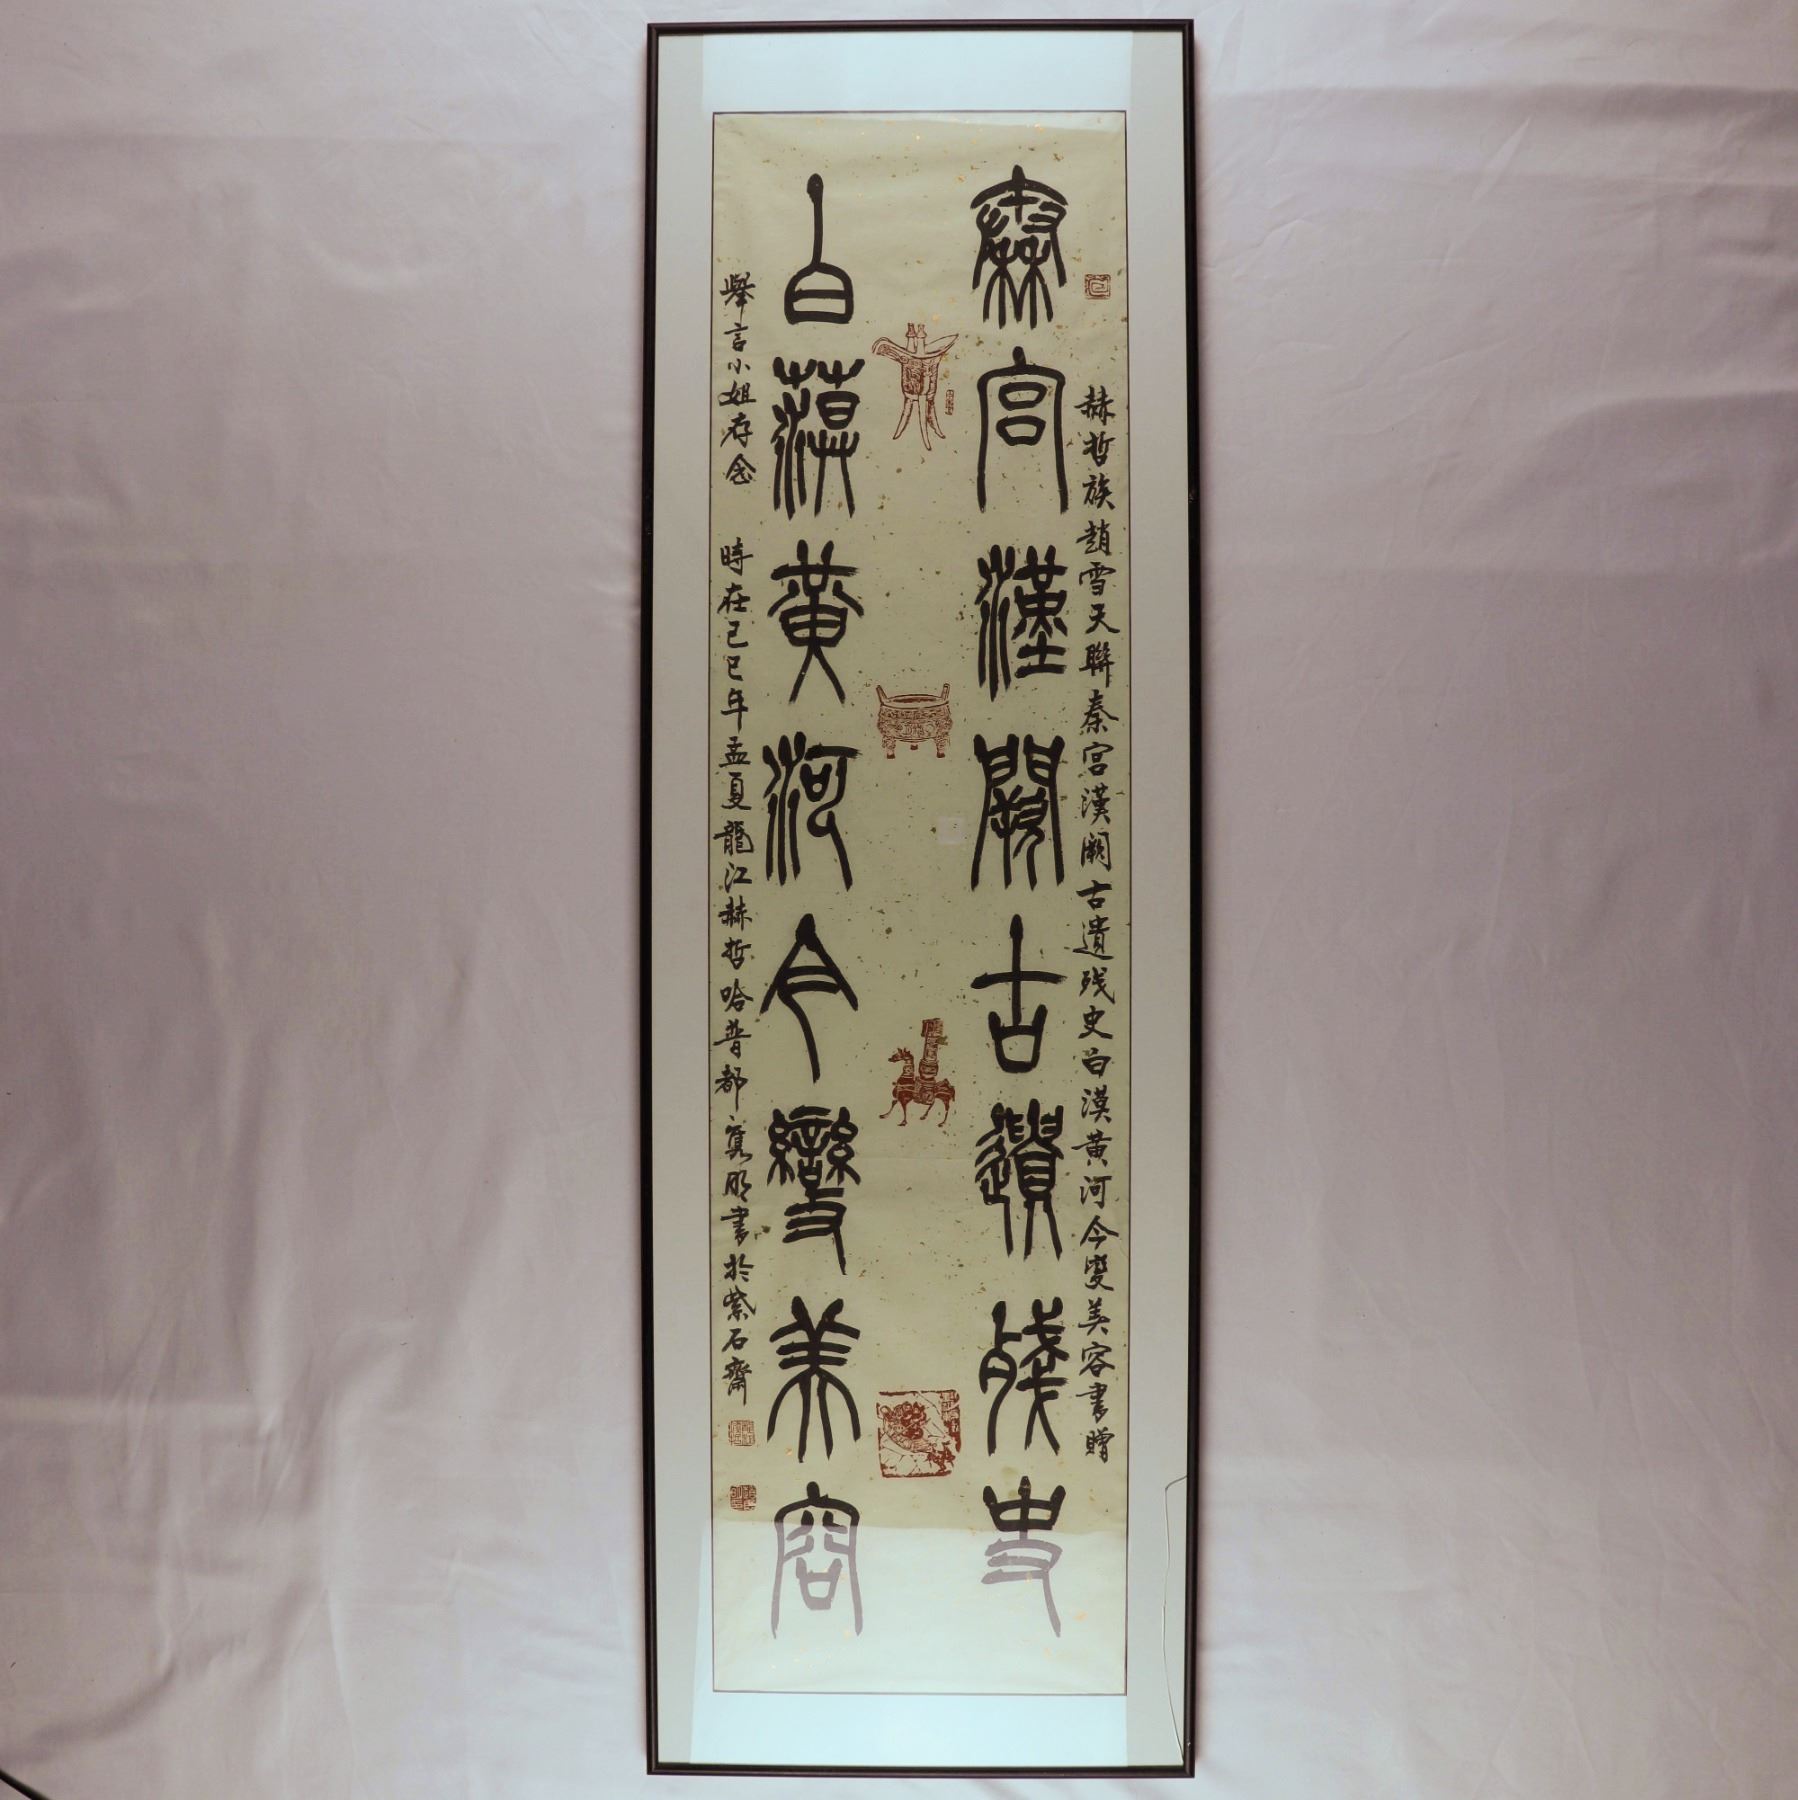 赫哲族趙雪天聯秦宮漢闕古遺殘史白漠黃河今變美容書贈
秦宮漢闕古遺殘史
白漠黃河今變美容
舉言小姐存念 時在己巳年孟夏龍江赫哲哈普都隽明書於紫石齋